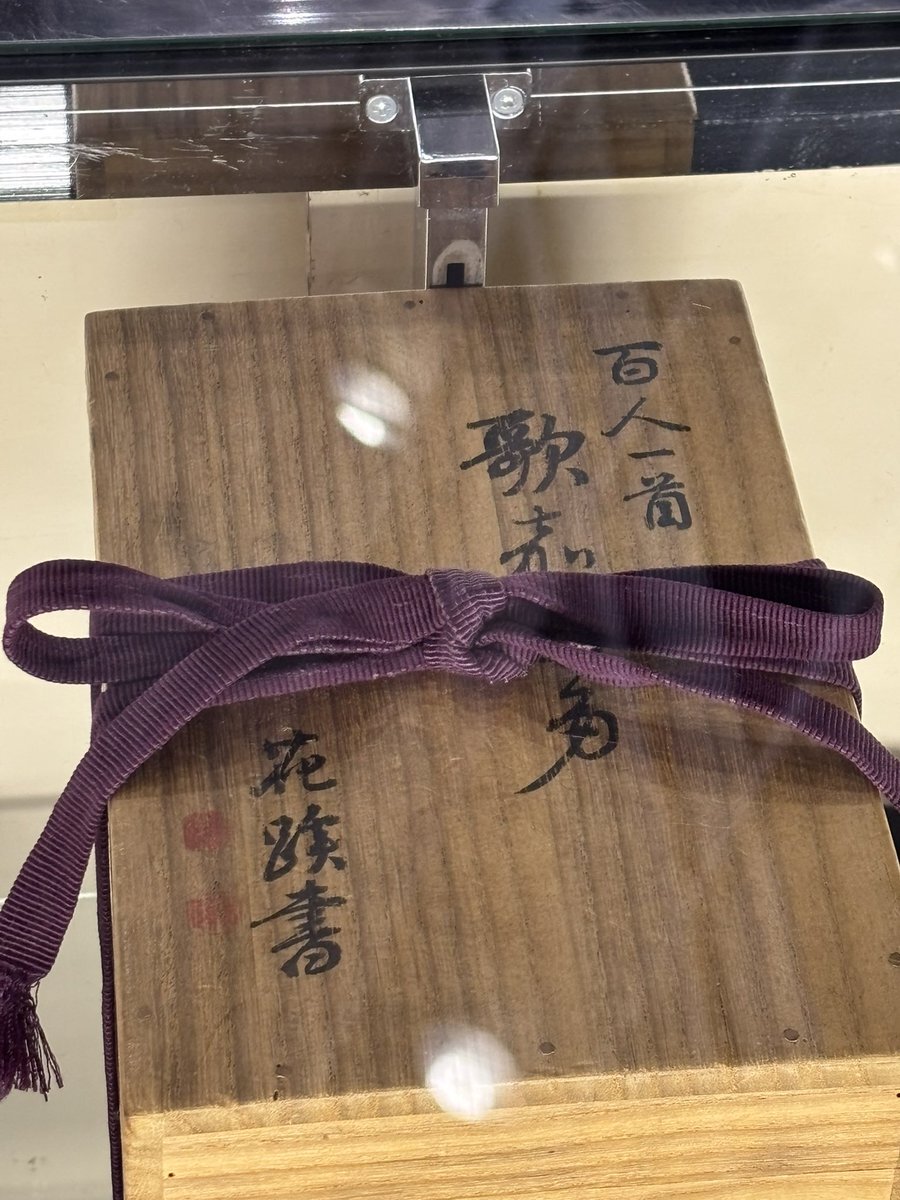 百人一首
歌嘉多
花蹊書